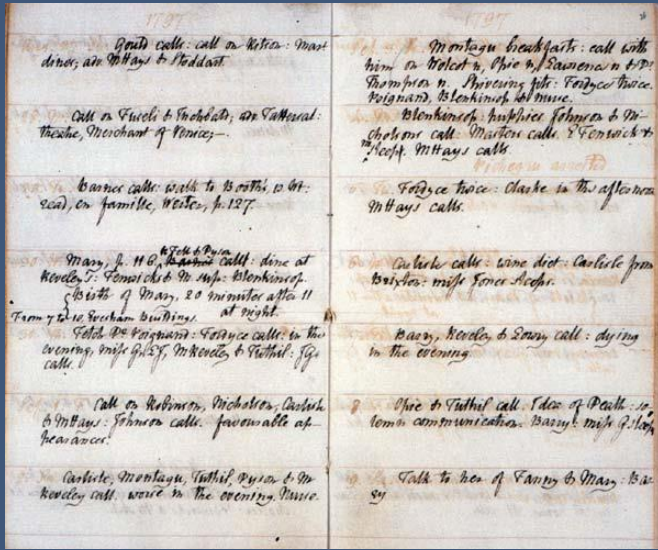 1797
Gould calls: call on Ritson: Mart
dines; adv. MHays & Stoddart
Call on Fuseli & Inchbald; adv. Tattersal:
theatre, Merchant of Venice;—
Barnes calls: walk to Booth's, w. Wt:
read, en famille, Werter, p. 127.
Mary, p. 116, Fell & Dyson calls: dine at
Reveley's: Fenwicks & M. sup: Blenkinsop.
Birth of Mary, 20 minutes after 11
at night.
From 7 to 10, Evesham Buildings.
Fetch Dr Poignand: Fordyce calls: in the
evening, miss G, EJ, MReveley & Tuthil: JG
calls.
Call on Robinson, Nicholson, Carlisle
& MHays: Johnson calls. favourable ap-
pearances.
Carlisle, Montagu, Tuthil, Dyson & M
Reveley call. worse in the evening. Nurse.
1797
Montagu breakfasts: call with
him on Wolcot n, Opie n, Lawrence n & Dr
Thompson n. Shivering fits: Fordyce twice.
Poignand, Blenkinsop & nurse.
Blenkinsop: puppies Johnson & Ni-
cholson call: Masters calls. E Fenwick &
M sleep. MHays calls
Pichegru arrested
Fordyce twice: Clarke in the afternoon
MHays calls.
Carlisle calls: wine diet: Carlisle from
Brixton: miss Jones sleeps.
Barry, Reveley & Lowry call: dying
in the evening
Opie & Tuthil call. Idea of Death: so-
lemn communication. Barry: miss G. sleeps
Talk to her of Fanny & Mary: Bar
ry